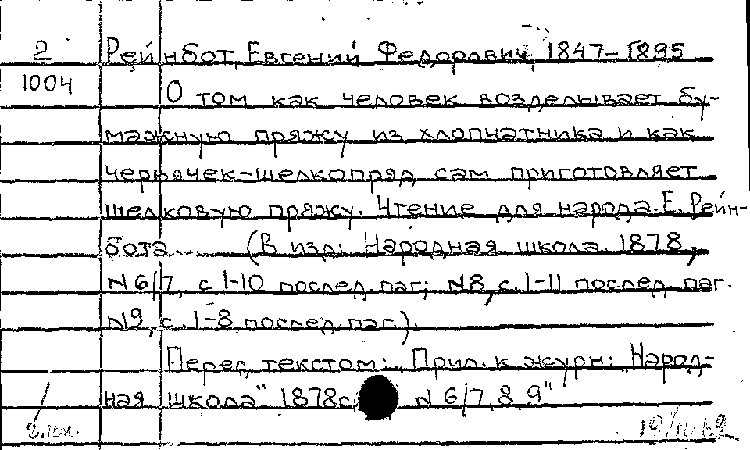 2 Рейнбот, Евгений Федорович, 1847-1895
1004 О том как человек возделывает бу-
мажную пряжу из хлопчатника и как
червячек-шелкопряд сам приготовляет
шелковую пряжу. Чтение для народа Е. Рейн-
бота.... (В изд: Народная школа. 1878,
N 6/7, с 1-10 послед. паг; N8, с. 1-11 послед. паг.
N9, с. 1-8 послед. паг.).
Перед текстом: „Прил. к журн: „Народ-
ная школа" 1878г. N 6/7, 8, 9"